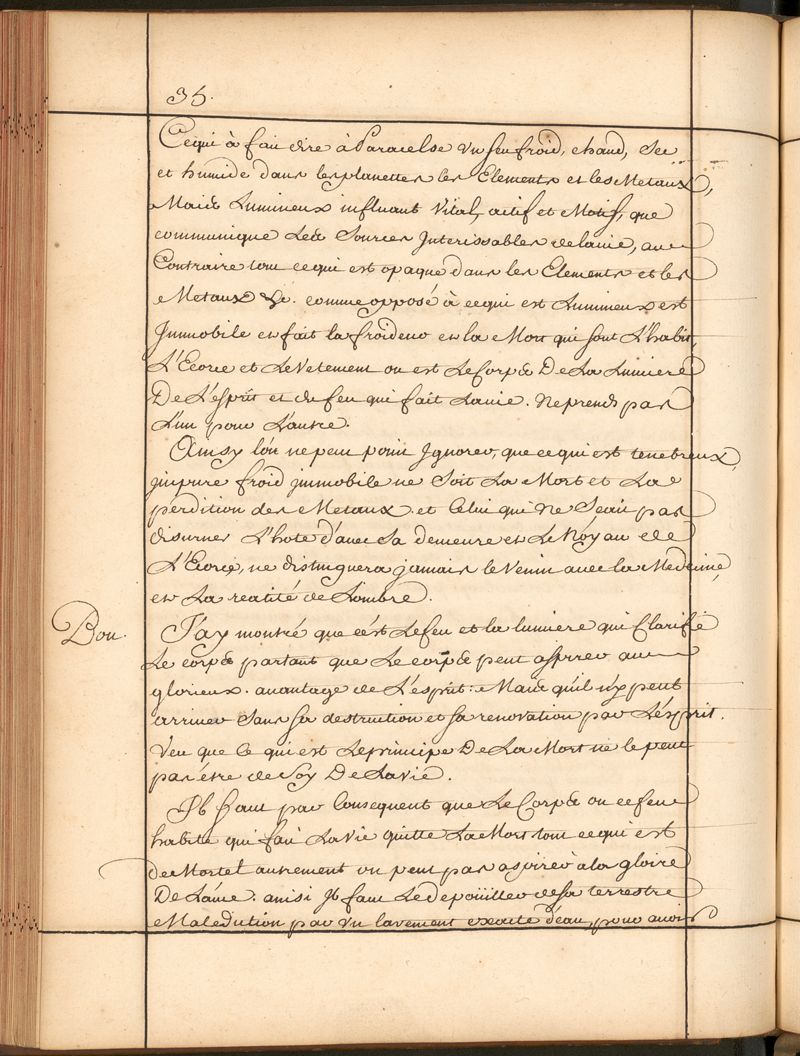 35.
Cequi à fait dire à Paracelse un feu froid, chaud, Sec
et humide dans les planettes les Elements et les Metaux,
Mais Lumineux influant Vital, actif et Motif, que
communique Les Sources Intarissables de la vie, au
Contraire tout ce qui est opaque dans les Elements et les
Metaux &c. comme opposé à ce qui est Lumineux est
Immobile et fait la froideur et la Mort qui sont L'habit,
L'Ecorce et Le Vetement ou est Le Corps De La Lumiere
De L'esprit et du feu qui fait La vie. Ne prends pas
L'un pour L'autre.
Ainsy lón ne peut point Ignorer, que ce qui est tenebreux,
impure froid immobile ne Soit La Mort et La
perdition des Metaux. et Celui qui Ne Scait pas
discerner L'hote d'avec Sa demeure et Le Nóyau de
L'Ecorce, ne distinguera jamais le Venin avec la Medecine,
et La realité de Lombre.
Bon. J'ay montré que c'est Le feu et la lumiere qui Clarifie
Le corps partant que Le corps peut aspirer au
glorieux avantage de L'esprit: Mais qu'il n'y peut
arriver Sans Sa destruction et sa renovation par L'esprit.
Veu que Ce qui est Le principe De La Mort ne le peut
pas être de Soy De La Vie.
Il faut par Consequent que Le Corps ou ce feu
habite qui fait La Vie quitte La Mort tout ce qui est
de Mortel autrement on peut pas aspirer à la gloire
De L'áme: ainsi Il faut Le depoüiller de Sa terrestre
Malediction par un lavement exacte d'eau, pour avoir